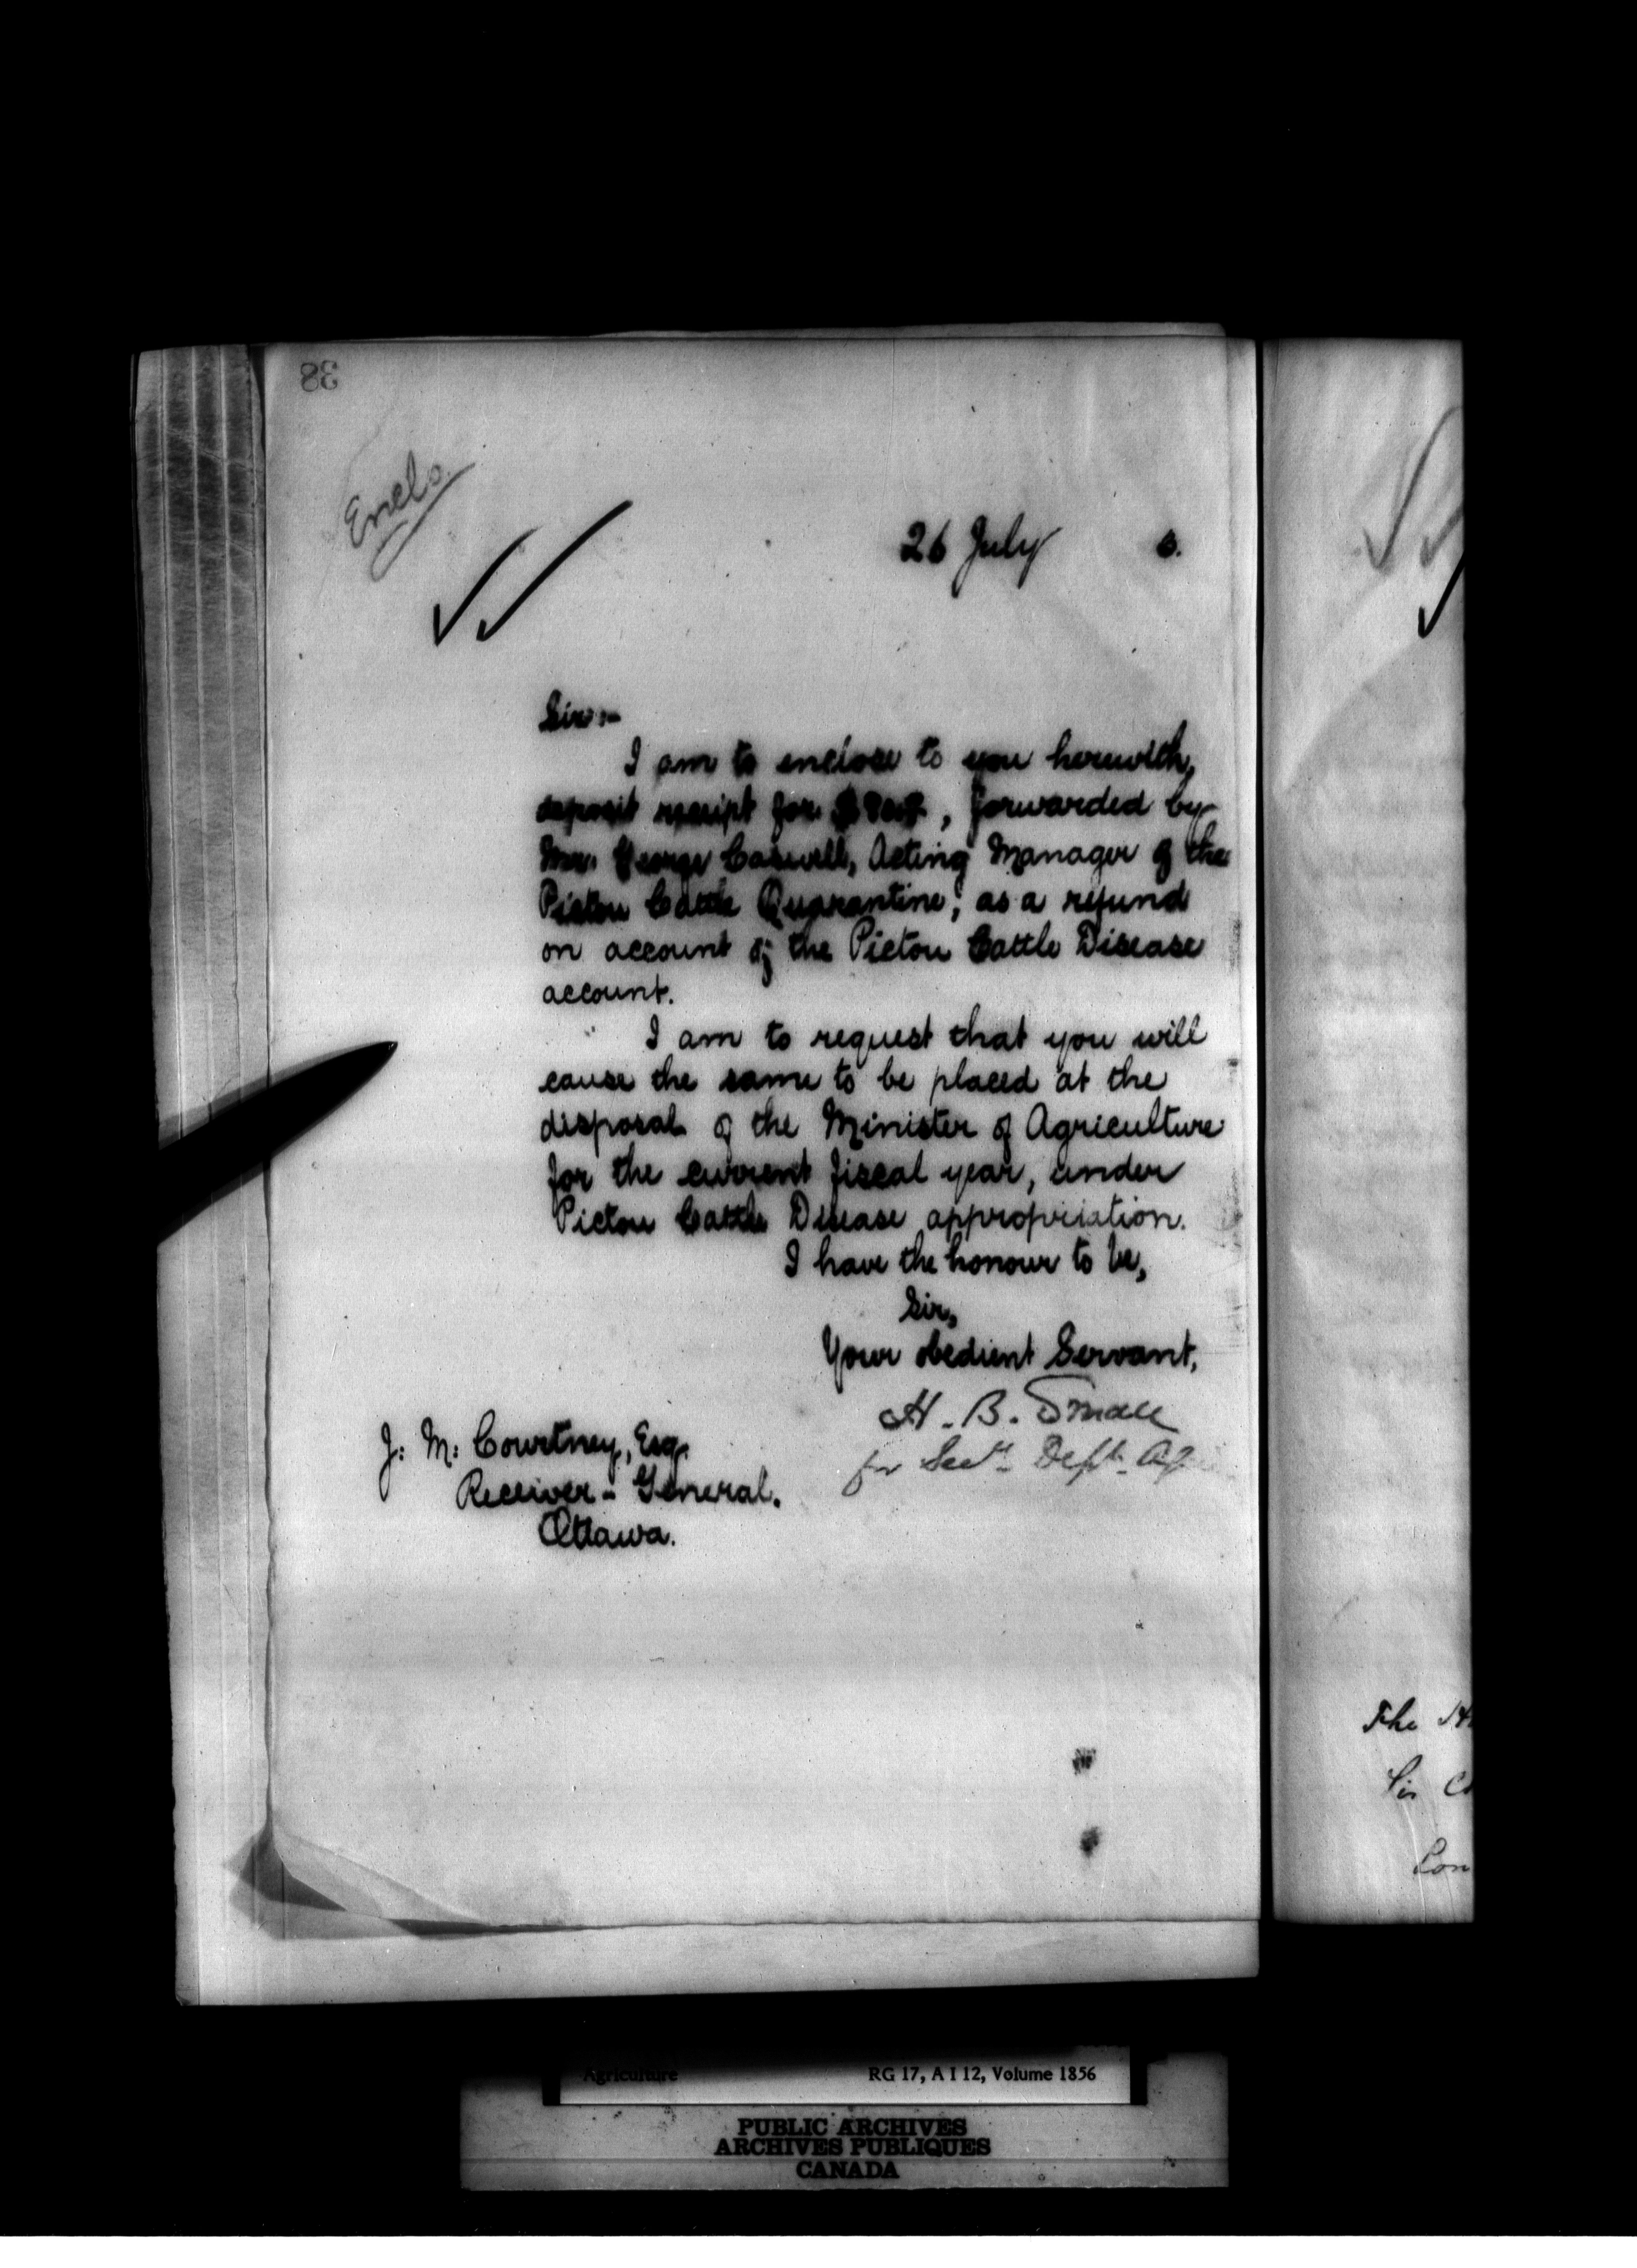 38
Encl.
26 July 6.
Sir:-
I am to enclose to you herewith,
deposit receipt for, forwarded by
Mr. George Caswell, Acting Manager of the
Pictou Cattle Quarantine, as a refund
on account of the Pictou Cattle Disease
account.
I am to request that you will
cause the same to be placed at the
disposal of the Minister of Agriculture
for the current fiscal year, under
Pictou Cattle Disease appropriation.
I have the honour to be,
Sir,
Your obedient Servant,
H. B. Small
for Secy. Dept. Agr
J. M. Courtney, Esq.
Receiver-General.
Ottawa.
The
Sir
Lon
Agriculture RG 17, A I 12, Volume 1856
PUBLIC ARCHIVES
ARCHIVES PUBLIQUES
CANADA